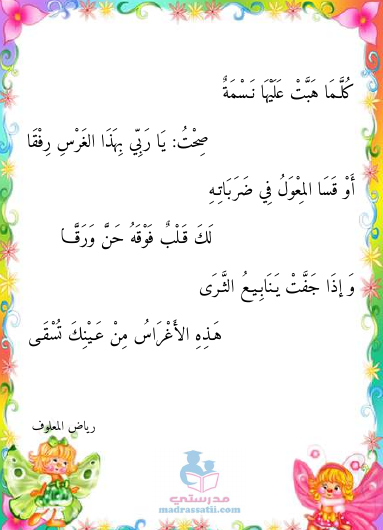 كُلَّمَا هَبَّتْ عَلَيْهَا نَسْمَةٌ
صِحْتُ: يَا رَبِّي بِهَذَا الغَرْسِ رِفْقَا
أَوْ قَسَا المِعْوَلُ فِي ضَرَبَاتِهِ
لَكَ قَلْبٌ فَوْقَهُ حَنَّ وَرَقَّا
وَإذَا جَفَّتْ يَنَابِيعُ الثَّرَى
هَذِهِ الأَغْرَاسُ مِنْ عَيْنِكَ تُسْقَى
رياض المعلوف
مدرستي
madrassatii.com